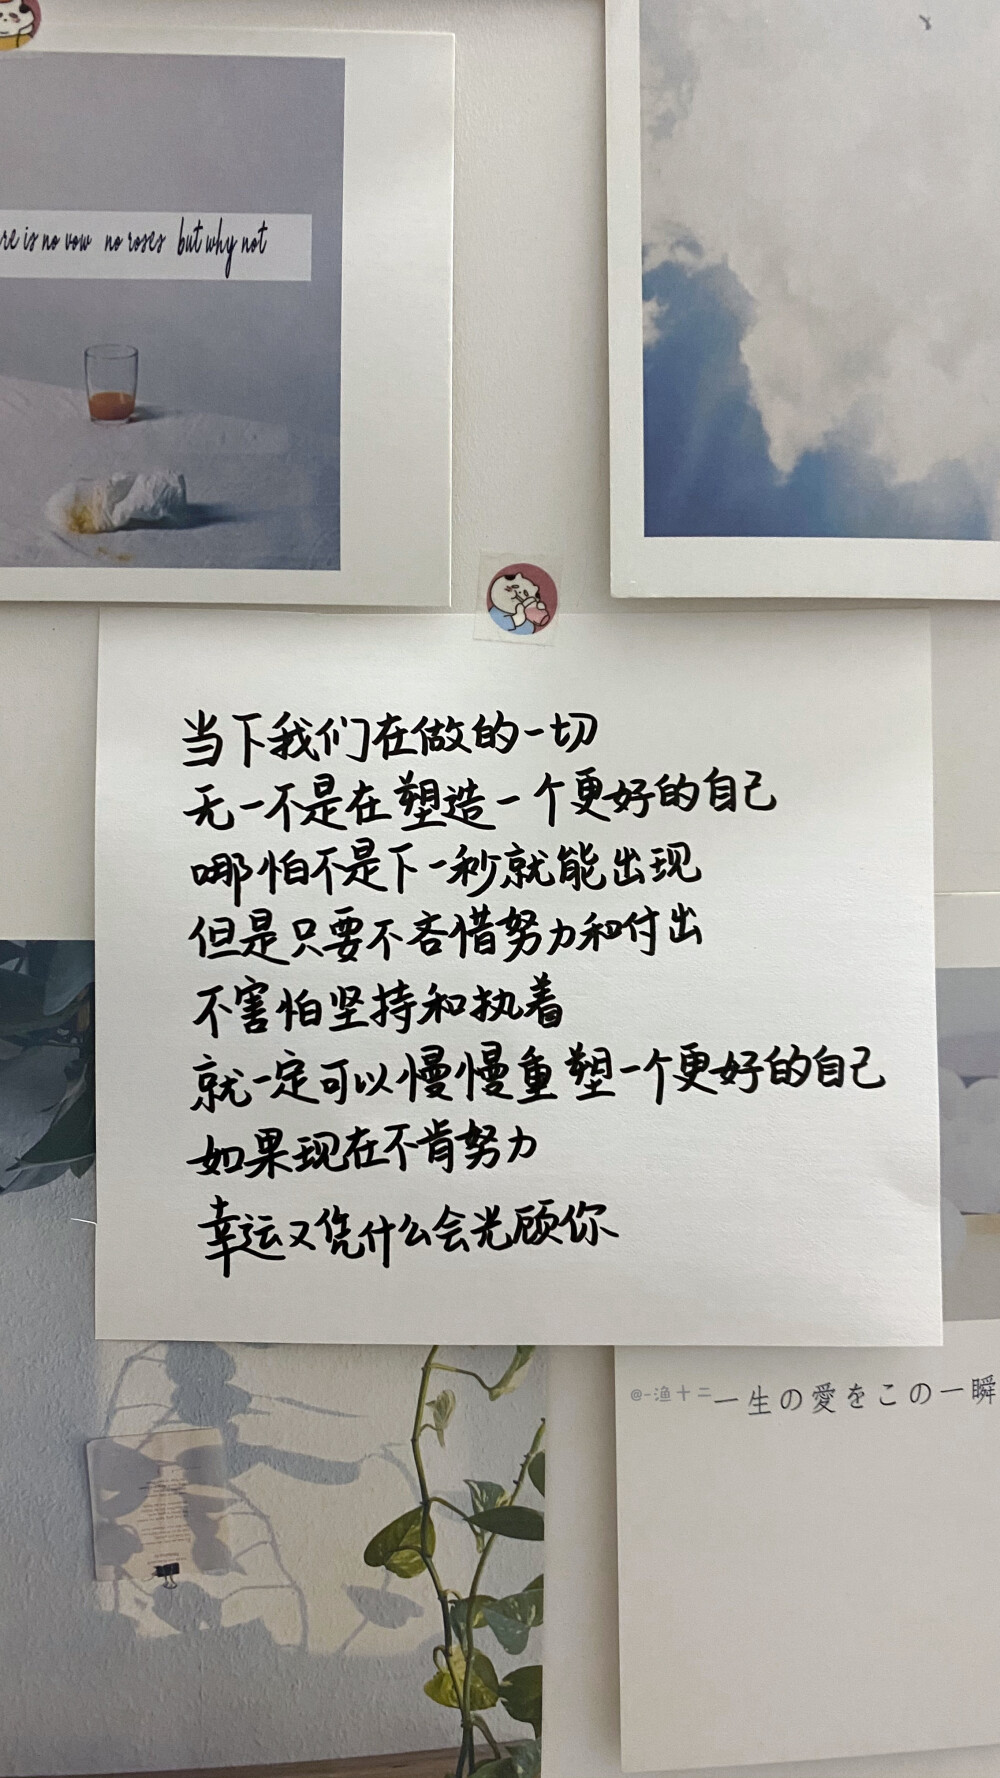 re is no vow no roses but why not
当下我们在做的一切
无一不是在塑造一个更好的自己
哪怕不是下一秒就能出现
但是只要不吝惜努力和付出
不害怕坚持和执着
就一定可以慢慢重塑一个更好的自己
如果现在不肯努力
幸运又凭什么会光顾你
@-渔十二
一生の愛をこの一瞬